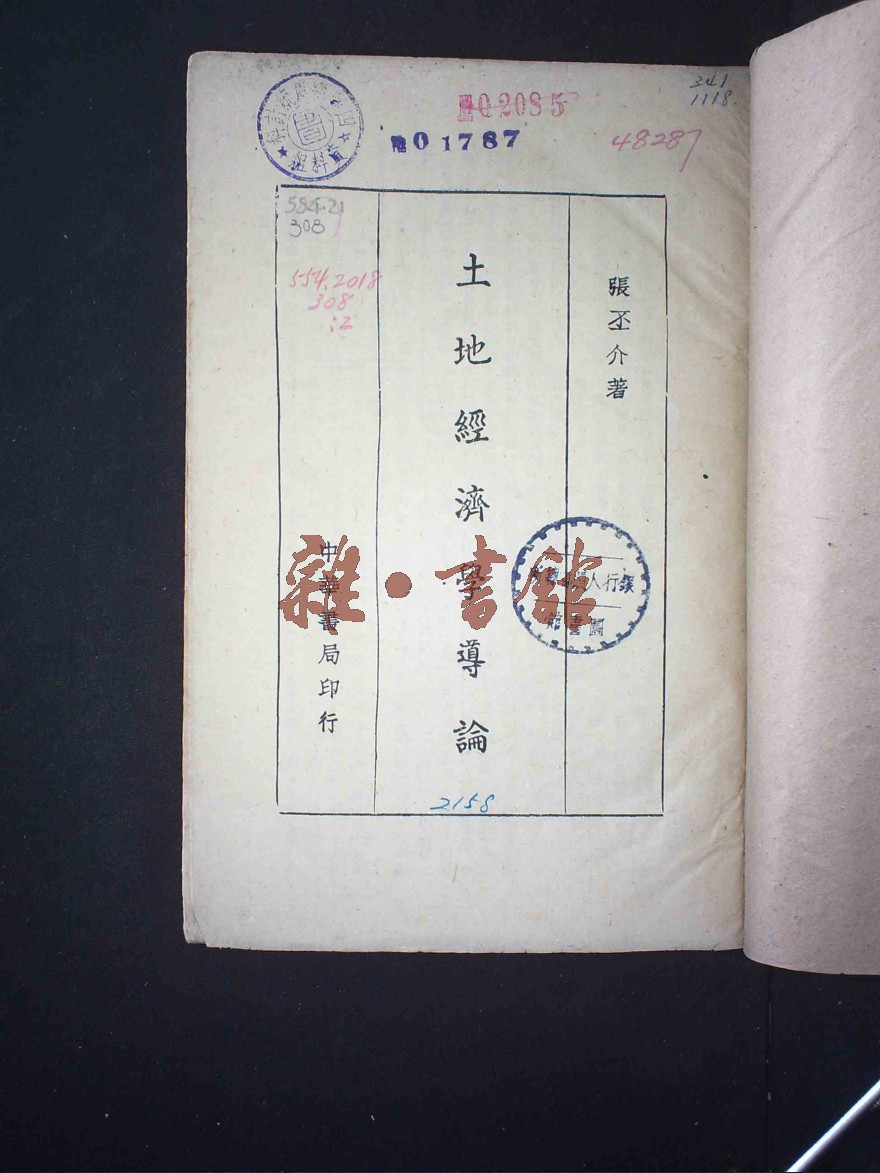 341
1118.
02085
01787
48287
張丕介著
土地經濟學導論
中華書局印行
584.21
308
554.2018
308
:2
雜·書館
圖書館
2158